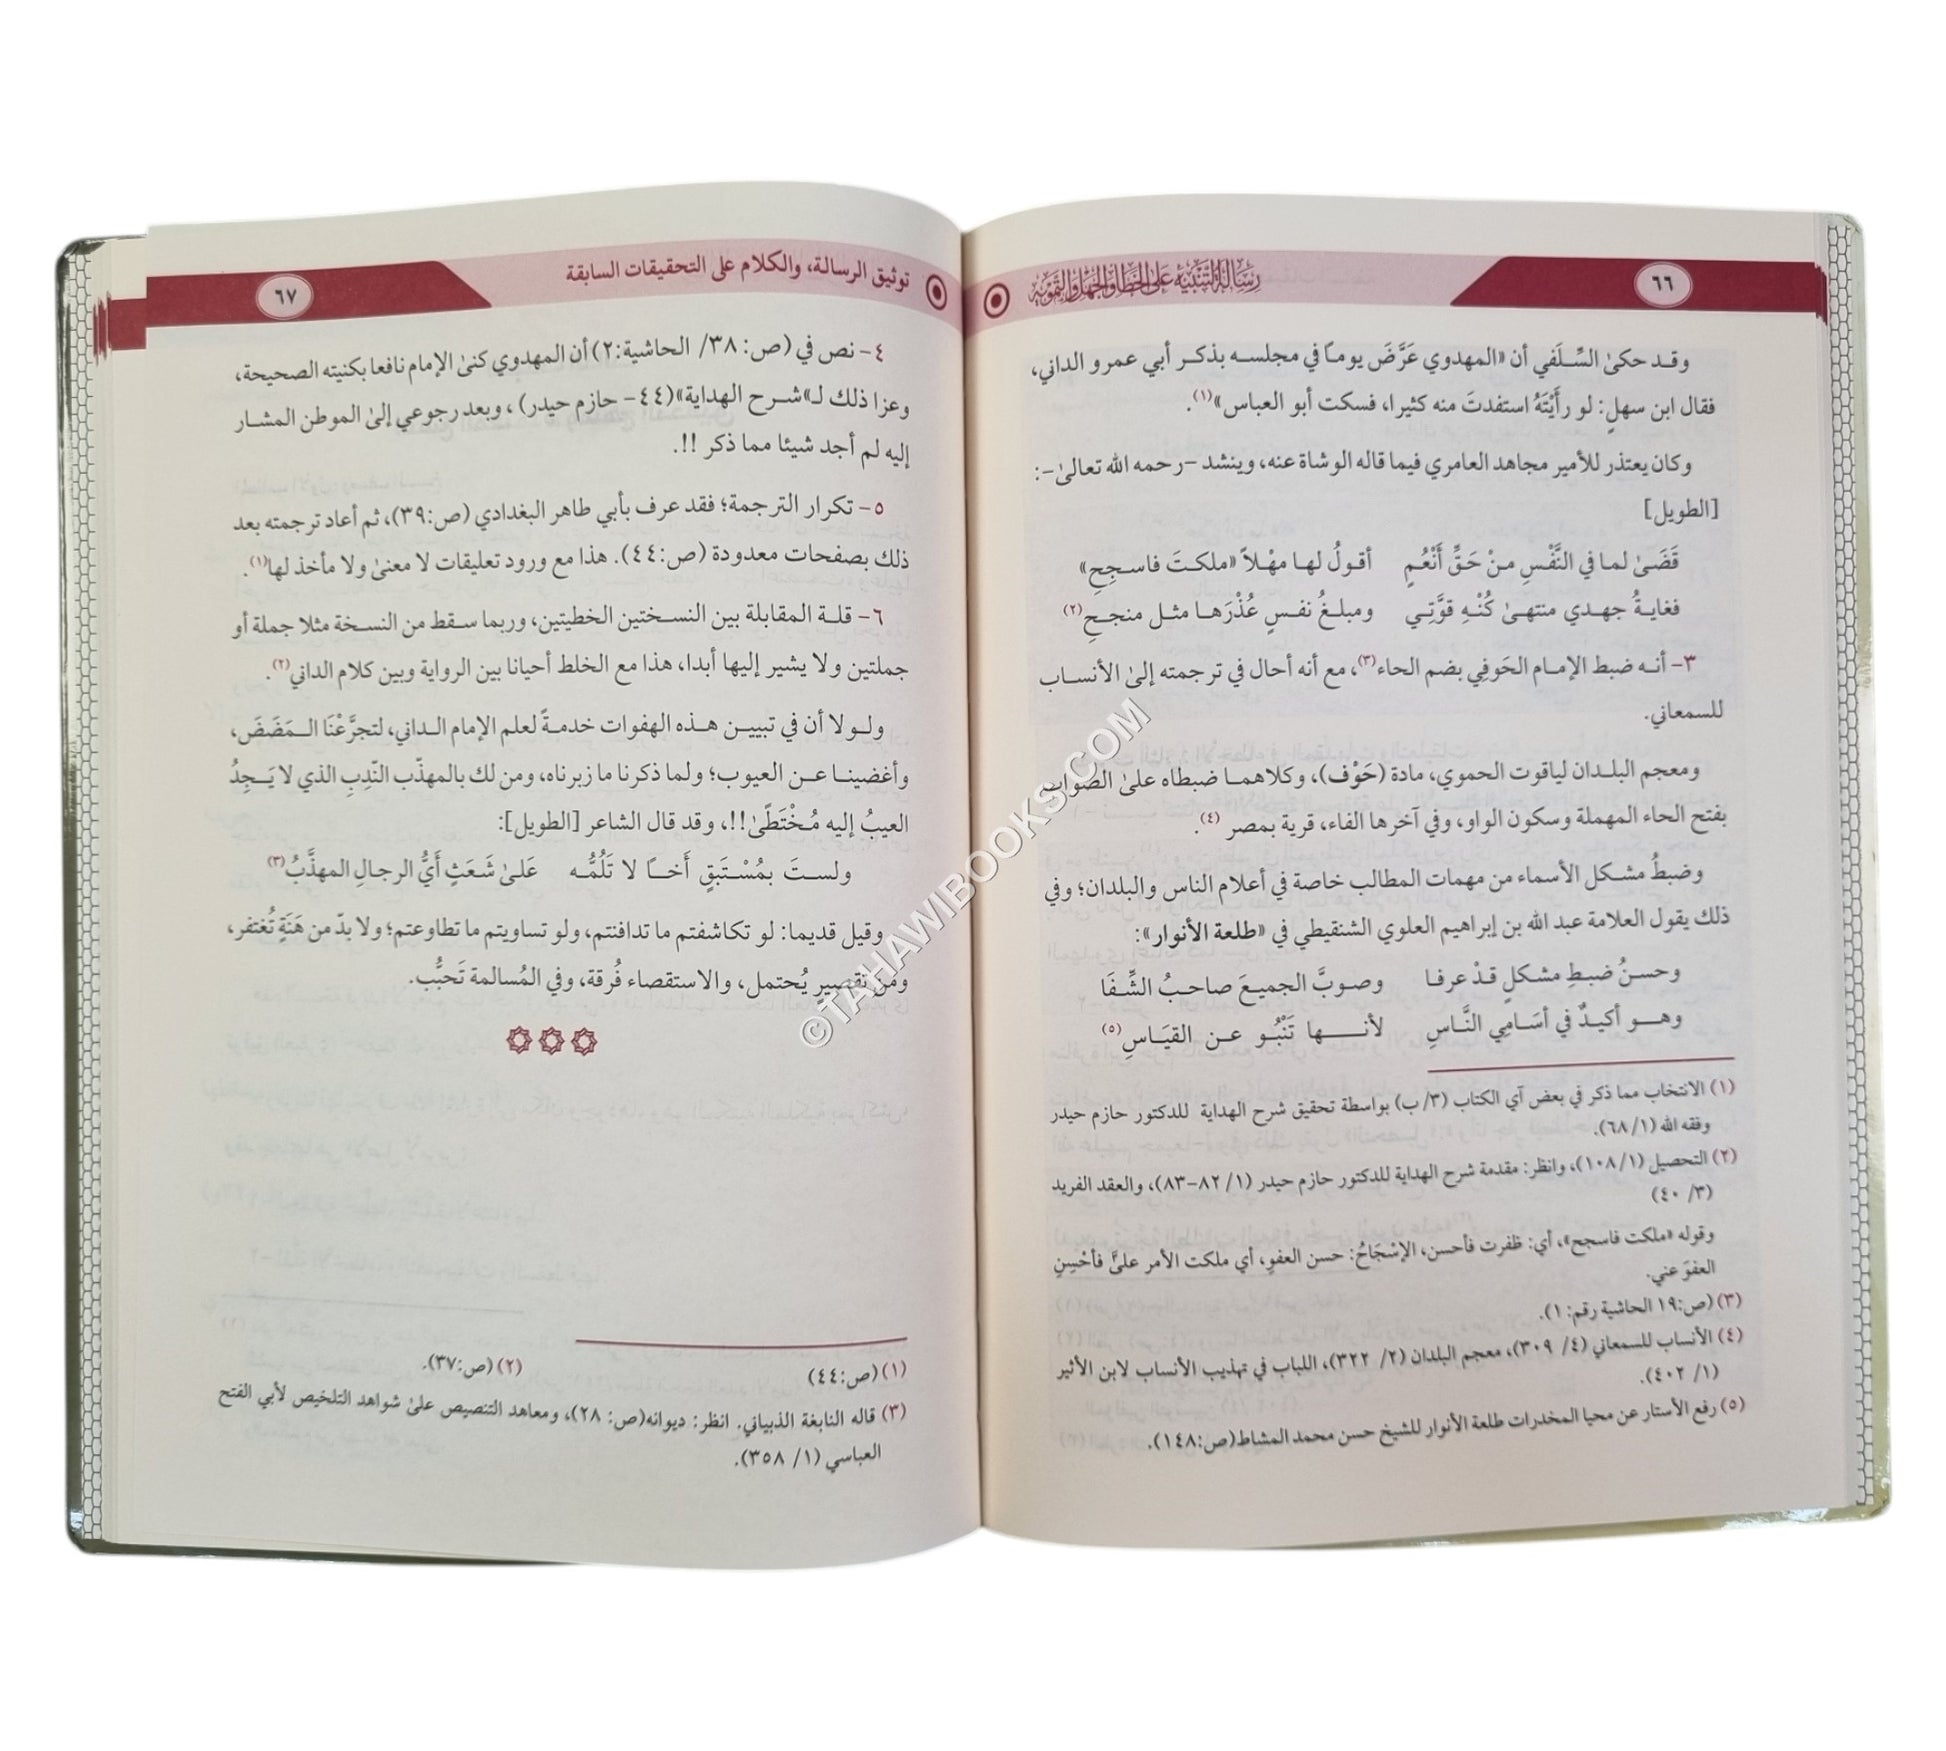 ٦٦
رسالة التنبيه على الخطأ والجهل والتمويه
وقد حكىٰ السِّلَفي أن «المهدوي عَرَّضَ يوماً في مجلسه بذكر أبي عمرو الداني،
فقال ابن سهلٍ: لو رأَيْتَهُ استفدتَ منه كثيرا، فسكت أبو العباس»(١).
وكان يعتذر للأمير مجاهد العامري فيما قاله الوشاة عنه، وينشد –رحمه الله تعالىٰ–:
[الطويل]
قَضَىٰ لما في النَّفْسِ مِنْ حَقِّ أَنْعُمٍ أقولُ لها مهْلاً «ملكتَ فاسجِحِ»
فغايةُ جهدي منتهىٰ كُنْهِ قوَّتِي ومبلغُ نفسٍ عُذْرَها مثل منجحِ(٢)
٣- أنه ضبط الإمام الحَوفِي بضم الحاء(٣)، مع أنه أحال في ترجمته إلىٰ الأنساب
للسمعاني.
ومعجم البلدان لياقوت الحموي، مادة (حَوْف)، وكلاهما ضبطاه علىٰ الصواب
بفتح الحاء المهملة وسكون الواو، وفي آخرها الفاء، قرية بمصر (٤).
وضبطُ مشكل الأسماء من مهمات المطالب خاصة في أعلام الناس والبلدان؛ وفي
ذلك يقول العلامة عبد الله بن إبراهيم العلوي الشنقيطي في «طلعة الأنوار»:
وحسنُ ضبطِ مشكلٍ قدْ عرفا وصوبَّ الجميعَ صاحبُ الشِّفَا
وهو أكيدٌ في أسَامِي النَّاسِ لأنها تَنْبُو عن القيَاسِ(٥)
(١) الانتخاب مما ذكر في بعض آي الكتاب (٣/ ب) بواسطة تحقيق شرح الهداية للدكتور حازم حيدر
وفقه الله (١/ ٦٨).
(٢) التحصيل (١/ ١٠٨)، وانظر: مقدمة شرح الهداية للدكتور حازم حيدر (١/ ٨٢-٨٣)، والعقد الفريد
(٣/ ٤٠)
وقوله «ملكت فاسجح»، أي: ظفرت فأحسن، الإسْجَاحُ: حسن العفوِ، أي ملكت الأمر علىَّ فأحْسِنِ
العفوَ عني.
(٣) (ص:١٩ الحاشية رقم: ١).
(٤) الأنساب للسمعاني (٤/ ٣٠٩)، معجم البلدان (٢/ ٣٢٢)، اللباب في تهذيب الأنساب لابن الأثير
(١/ ٤٠٢).
(٥) رفع الأستار عن محيا المخدرات طلعة الأنوار للشيخ حسن محمد المشاط(ص:١٤٨).
توثيق الرسالة، والكلام على التحقيقات السابقة
٦٧
٤- نص في (ص: ٣٨/ الحاشية:٢) أن المهدوي كنىٰ الإمام نافعا بكنيته الصحيحة،
وعزا ذلك لـ»شرح الهداية»(٤٤- حازم حيدر) ، وبعد رجوعي إلىٰ الموطن المشار
إليه لم أجد شيئا مما ذكر !!.
٥- تكرار الترجمة؛ فقد عرف بأبي طاهر البغدادي (ص:٣٩)، ثم أعاد ترجمته بعد
ذلك بصفحات معدودة (ص:٤٤). هذا مع ورود تعليقات لا معنىٰ ولا مأخذ لها(١).
٦- قلة المقابلة بين النسختين الخطيتين، وربما سقط من النسخة مثلا جملة أو
جملتين ولا يشير إليها أبدا، هذا مع الخلط أحيانا بين الرواية وبين كلام الداني(٢).
ولولا أن في تبيين هذه الهفوات خدمةً لعلم الإمام الداني، لتجرَّعْنَا المَضَضَ،
وأغضينا عن العيوب؛ ولما ذكرنا ما زبرناه، ومن لك بالمهذّب النّدِبِ الذي لا يَجِدُ
العيبُ إليه مُخْتَطًىٰ!!، وقد قال الشاعر [الطويل]:
ولستَ بمُسْتَبقٍ أَخًا لا تَلُمُّه عَلىٰ شَعَثٍ أَيُّ الرجالِ المهذَّبُ(٣)
وقيل قديما: لو تكاشفتم ما تدافنتم، ولو تساويتم ما تطاوعتم؛ ولا بدّ من هَنَةٍ تُغتفر،
ومن تقصيرٍ يُحتمل، والاستقصاء فُرقة، وفي المُسالمة تَحبُّب.
(١) (ص:٤٤) (٢) (ص:٣٧).
(٣) قاله النابغة الذبياني. انظر: ديوانه(ص: ٢٨)، ومعاهد التنصيص علىٰ شواهد التلخيص لأبي الفتح
العباسي (١/ ٣٥٨).
©TAHAWIBOOKS.COM